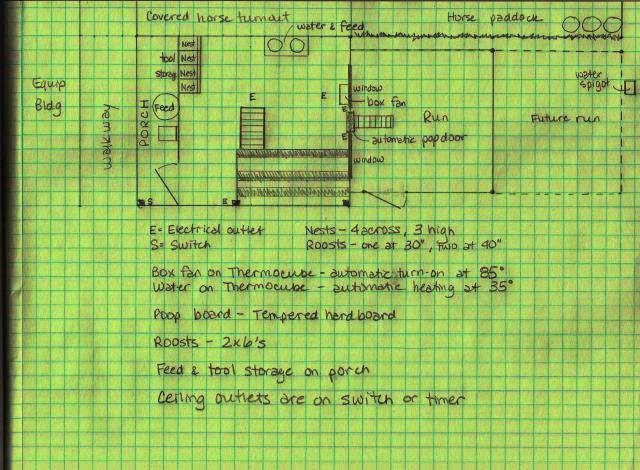 Covered horse turnout
Horse paddock
water & feed
Nest
tool
Nest
storage
Nest
Nest
Equip
Bldg
PORCH
Feed
E
E
window
box fan
E
E
automatic popdoor
window
Run
Future run
water
spigot
S
E
E= Electrical outlet
S= Switch
Nests - 4 across, 3 high
Roosts - one at 30", two at 40"
Box fan on Thermocube - automatic turn-on at 85°
Water on Thermocube - automatic heating at 35°
Poop board - Tempered hardboard
Roosts - 2x6's
Feed & tool storage on porch
Ceiling outlets are on switch or timer